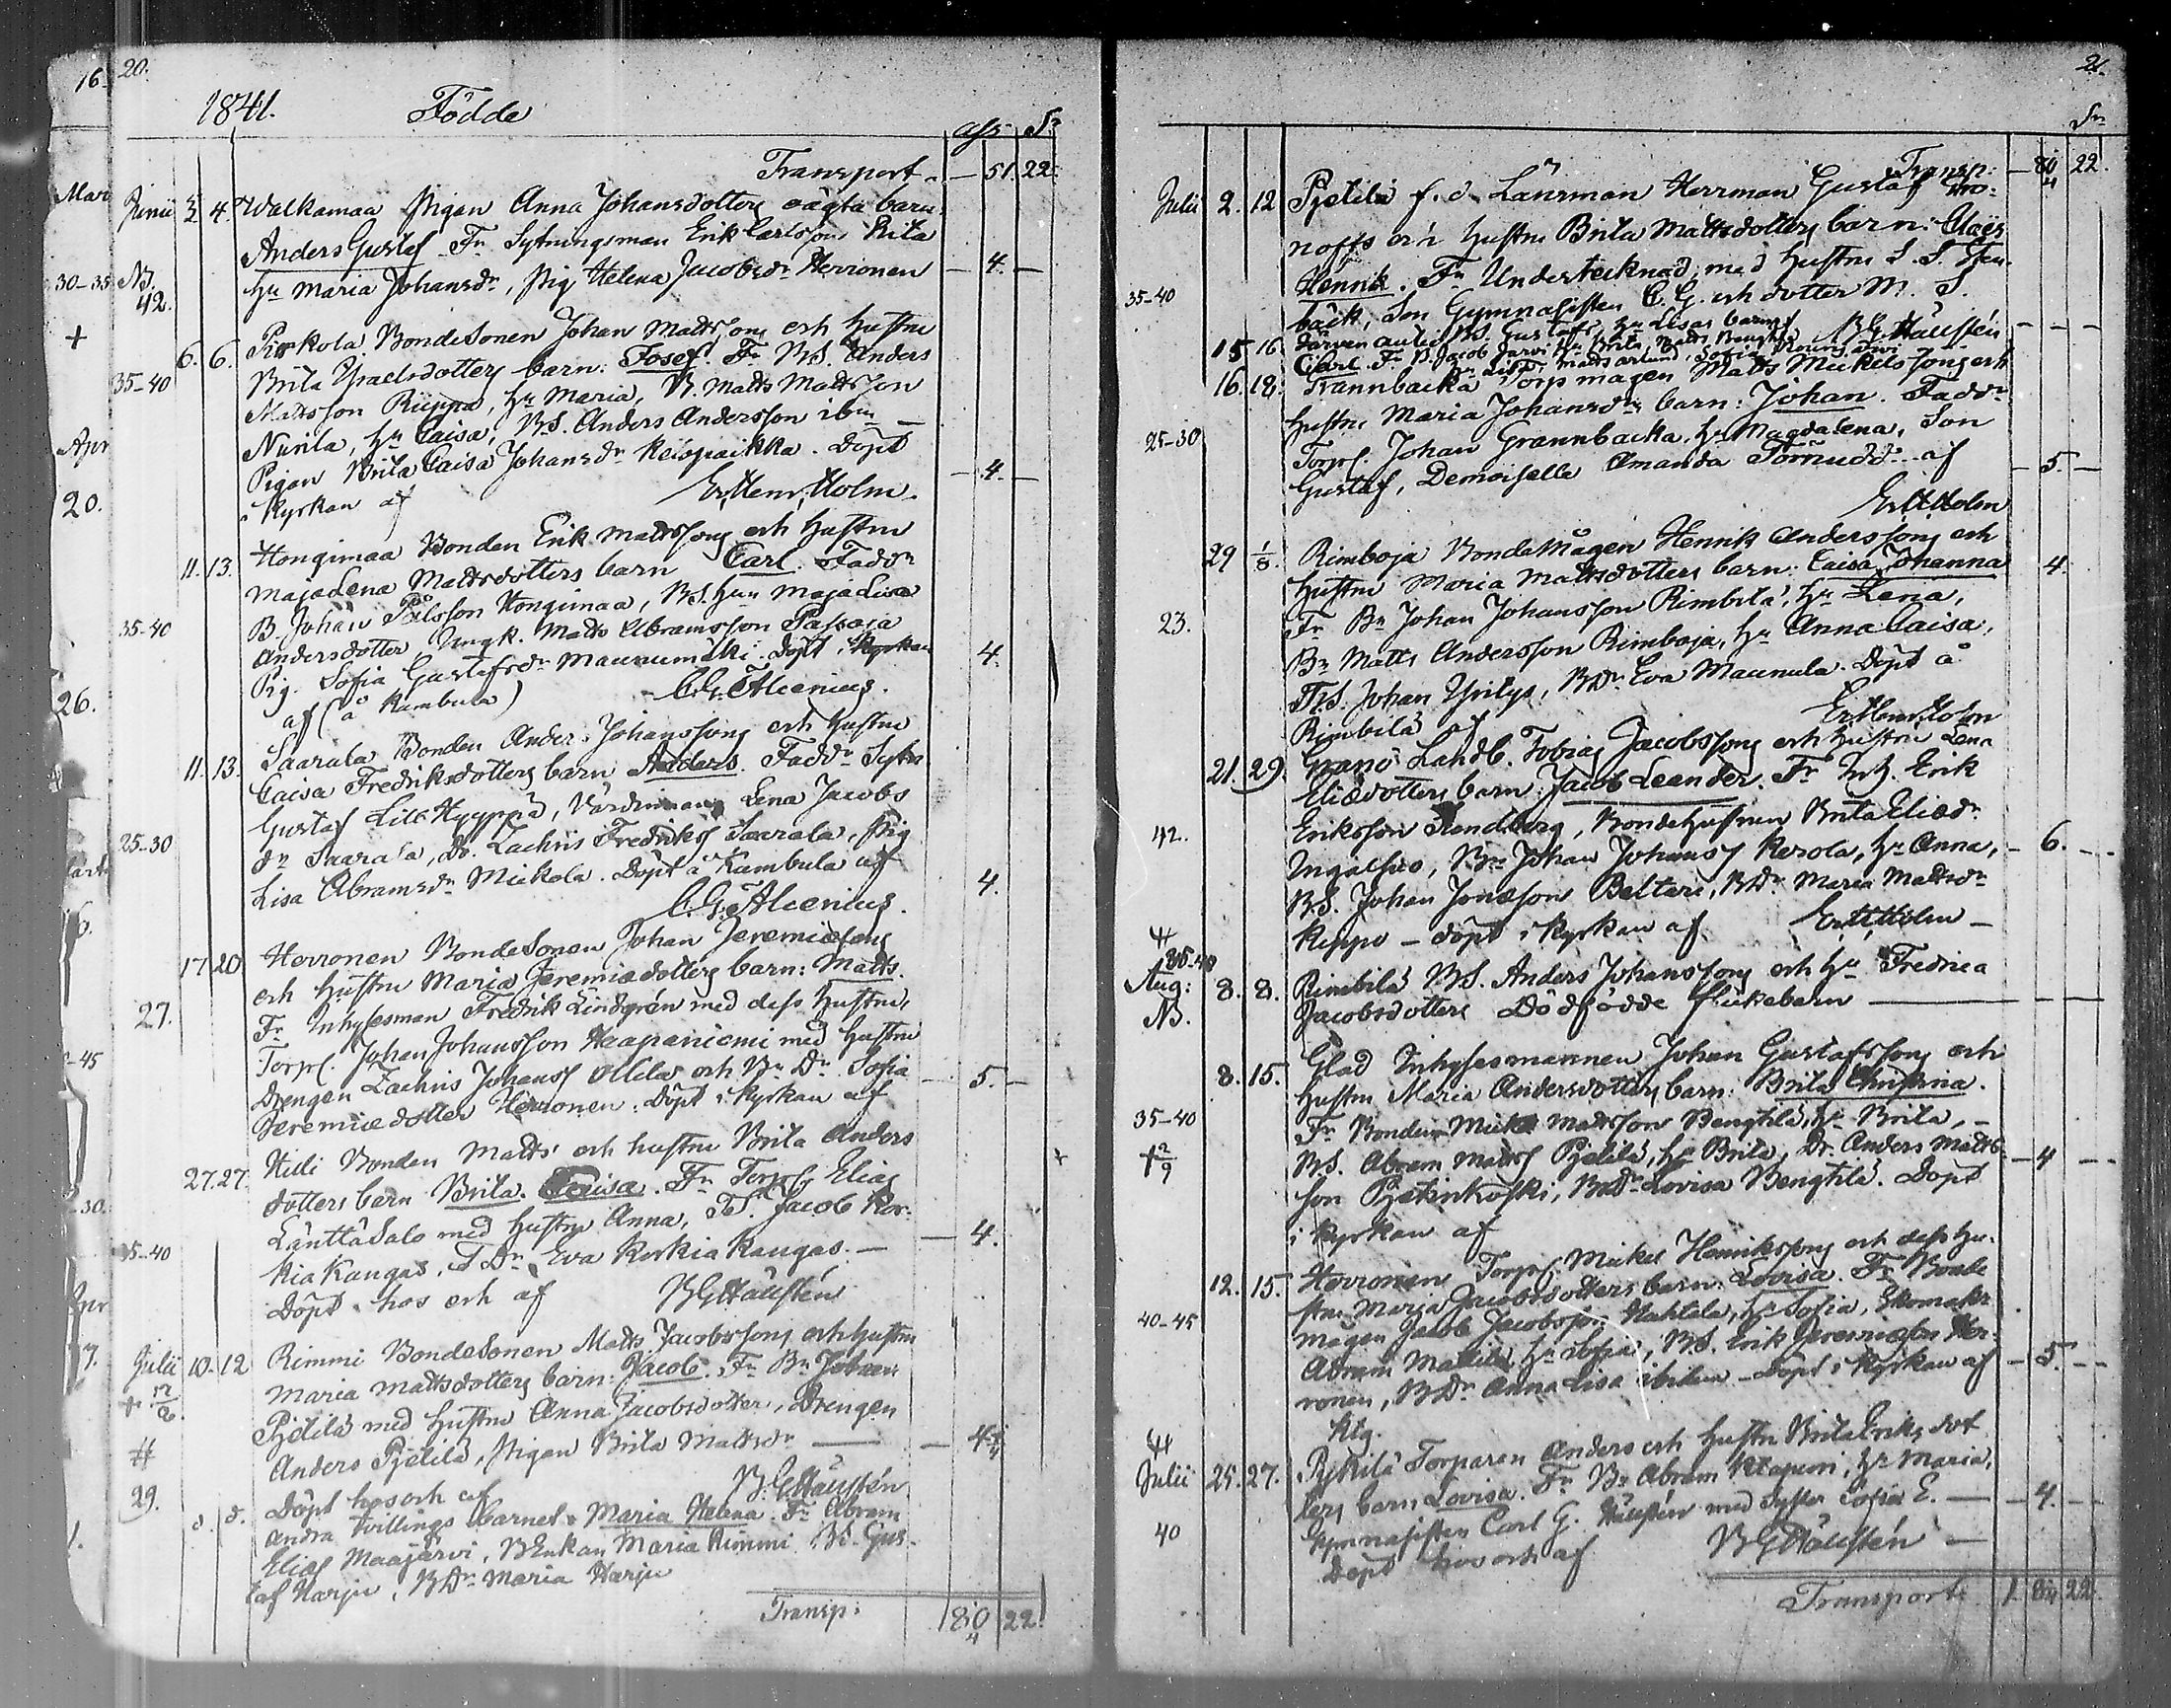 20.
1841. Födde
Transport - 51. 22.
Junii 4. Walkamaa Pigan Anna Johansdotters oägta barn
Anders Gustaf. Fr Sytningsman Erik Carlsson Rita
NB. 42. hu Maria Johansdr, Pig Helena Jacobsdr Herronen — 4. —
6. 6. Bondesonen Johan Mattssons och hustru
35-40 Brita dotters barn: Josef. Fr BS. Anders
Mattsson Riippa, hu Maria, B. Matts Mattsson
Nurila, hu Caisa, BS. Anders Andersson ibm —
Pigan Brita Caisa Johansdr Keispaikka. Döpt — 4. —
i kyrkan af Er. Henr. Holm.
11. 13. Hongimaa Bonden Erik Mattssons och hustru
MajaLena Mattsdotters barn Carl. Faddr
35-40 B. Johan Pålsson Hongimaa, BS. hun Maja Lisa
Andersdotter, Ungk. Matts Abramsson Passoja
Pig. Sofia Gustafsdr Maunumäki. Döpt i kyrkan 4.
af (å Kambula) C.G. Alcenius.
11. 13. Saarala Bonden Anders Johanssons och hustru
Caisa Fredriksdotters barn Anders. Faddr Sytn.
Gustaf Lill Hyyppä, Värdinnan Lena Jacobs
25-30 dr Saarala, Dr. Zachris Fredrikss Saarala, Pig
Lisa Abramsdr Mickola. Döpt å Kambula af 4.
C.G. Alcenius.
17 20 Herronen Bondesonen Johan Jeremiæsons
och hustru Maria Jeremiædotters barn: Matts.
27. Fr Inhysesman Fredrik Lindgrén med dess hustru,
Torp. Johan Johansson Haapaniemi med hustru
Drengen Zachris Johanss Ollila och Bn Dr Sofia — 5. —
Jeremiædotter Herronen. Döpt i kyrkan af
27. 27. Hilli Bonden Matts och hustru Brita Anders
dotters barn Brita Caisa. Fr Torp. Elias
Länttäsalo med hustru Anna, TS. Jacob Kor- — 4.
35-40 kiakangas, TDr Eva Korkiakangas. —
Döpt hos och af BGHällstén
Julii 10. 12 Rimmi Bondesonen Matts Jacobssons och hustru
Maria Mattsdotters barn: Jacob. Fr Bn Johan
Pjetilä med hustru Anna Jacobsdotter, Drengen
Anders Pjetilä, Pigan Brita Mattsdr —
29. Döpt hos och af B.GHällstén
d. d. Andra tvillings barnet: Maria Helena. Fr Abram
Elias Maajärvi, BEnkan Maria Rimmi BS. Gus-
taf Harju, BDr Maria Harju
Transp: 80 22
4
21.
Transp: — 80 22.
Julii 2. 12 Pjetilä f.d. Länsman Herrman Gustaf
och hustru Brita Mattsdotters barn: Claës
Henrik. Fr Undertecknad, med hustru S. S. Sten-
35-40 bäck, Son Gymnasisten C. G. och dotter M. S.
BGHällstén — — —
15 16
Carl. Fr B. Jacob Järvi hu Brita,
16. 18. Grannbacka Torpmågen Matts Mickelssons och
hustru Maria Johansdrs barn: Johan. Faddr
25-30 Torp. Johan Grannbacka, hu Magdalena, Son
Gustaf, Demoiselle Amanda Törnudd af — 5. —
Er.H.Holm
29 1/8. Rimboja Bondemågen Henrik Anderssons och
hustru Maria Mattsdotters barn: Caisa Johanna 4.
23. Fr Bn Johan Johansson Rimbilä, hu Lena,
Bn Matts Andersson Rimboja, hu Anna Caisa,
BS. Johan Yrilys, BDr Eva Maunula. Döpt å
Rimbilä af Er. Henr. Holm
21. 29. Granö Landb. Tobias Jacobssons och hustru Lena
Eliædotters barn: Jacob Leander. Fr Inh. Erik
42. Eriksson Sandberg, Bondehustrun Brita Eliædr
Ingalsuo, Bn Johan Johanss Kerola, hu Anna, — 6. —
BS. Johan Jonæson Beltari, BDr Maria Mattsdr
Keppo — döpt i kyrkan af Er.H.Holm —
35-40
Aug: 8. 8. Rimbilä BS. Anders Johanssons och hu Fredrica
NB. Jacobsdotters Dödfödde flickebarn — — —
8. 15. Glad Inhysesmannen Johan Gustafssons och
hustru Maria Andersdotters barn: Brita Christina.
35-40 Fr Bonden Mickel Mattsson Bengtilä, hu Brita, —
† 2/9 BS. Abram Mattss Pjetilä, hu Brita, Dr. Anders Matts- — 4 —
son Pjetinkoski, BDr Lovisa Bengtilä. Döpt
i kyrkan af
12. 15. Herronen Torp. Mickel Henrikssons och dess hu-
stru Maria Jacobsdotters barn: Lovisa. Fr Bonde
40-45 mågen Jacob Jacobsson Hahtela, hu Sofia, Skomakr
Abram Mattila, hu Sofia, BS. Erik Jeremiæson Her-
ronen, BDr Anna Lisa ibidem — Döpt i kyrkan af — 5. —
Julii 25. 27. Pykilä Torparen Anders och hustru Brita Eriksdot
ters barn Lovisa. Fr Bn Abram Klapuri, hu Maria,
40 Gymnasisten Carl G. Hällstén med syster Sofia E. — 4. —
Döpt hos och af BGHällstén —
Transport 1. 22.